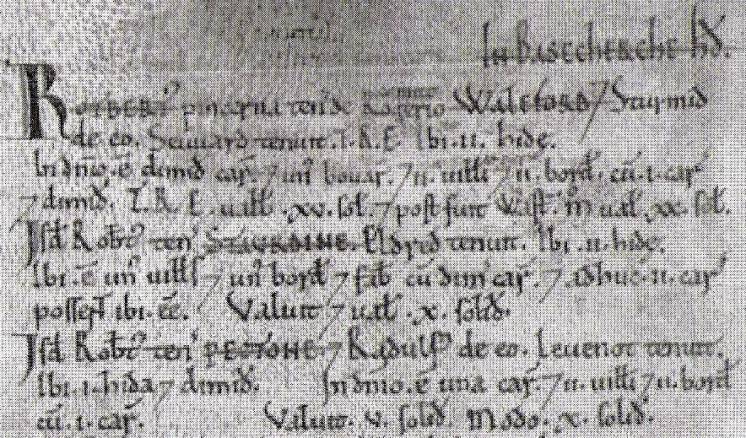 In BASECHERCHE HD.
ROTBERT' pincerna ten' de Rogerio WALEFORD 7 Sturmid
de eo. Seuuard tenuit. T.R.E. Ibi. ii. hidę.
In dn̄io. ē dimid' car'. 7 un' bouar'. 7 ii. uiłłi 7 ii. bord'. cū. i. car'
7 dimid'. T.R.E. uałb. xv. soł. 7 post fuit Wast'. m̊ uał. xx. soł.
Isd' Rotb't' ten' STIVRDINE. Eldred tenuit. Ibi. ii. hidę.
Ibi. ē un' uiłłs 7 un' bord' 7 fab' cū dim' car'. 7 adhuc. ii. car'
possent ibi. ēē. Valuit 7 uał. x. solid'.
Isd' Rotb't' ten' PECTONE 7 Radulf' de eo. Leuenot tenuit.
Ibi. i. hida 7 dimid'. In dn̄io. ē una car'. 7 ii. uiłłi 7 ii. bord'
cū. i. car'. Valuit. v. solid'. Modo. x. solid'.